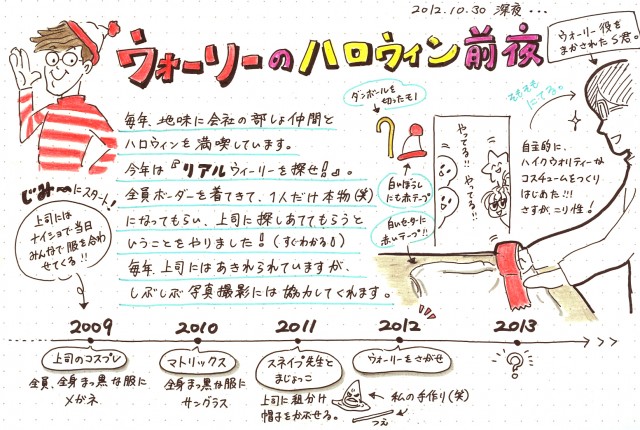 2012.10.30 深夜...
ウォーリーのハロウィン前夜
ウォーリー役を
まかされたS君。
そもそも
にてる。
ダンボールを
切ったもの
毎年、地味に会社の部しょ仲間と
ハロウィンを満喫しています。
今年は『リアルウィーリーを探せ!』。
全員ボーダーを着てきて、1人だけ本物(笑)
になってもらい、上司に探しあててもらうと
いうことをやりました!(すぐわかる0)
毎年、上司にはあきれられていますが、
しぶしぶ写真撮影には協力してくれます。
やってる!!
やってる!!
白いぼうし
にも赤テープ
白いセーターに
赤いテープ!!
自主的に、
ハイクウォリティーな
コスチュームをつくり
はじめた!!!
さすが、こり性!
じみ〜にスタート!
上司には
ナイショで当日
みんなで服を合わ
せてくる!!
2009
2010
2011
2012
2013
上司のコスプレ
全員、全身まっ黒な服に
メガネ
マトリックス
全身まっ黒な服に
サングラス
スネイプ先生と
まじょっこ
上司に組分け
帽子をかぶせる。
私の手作り(笑)
つえ
ウォーリーをさがせ
?